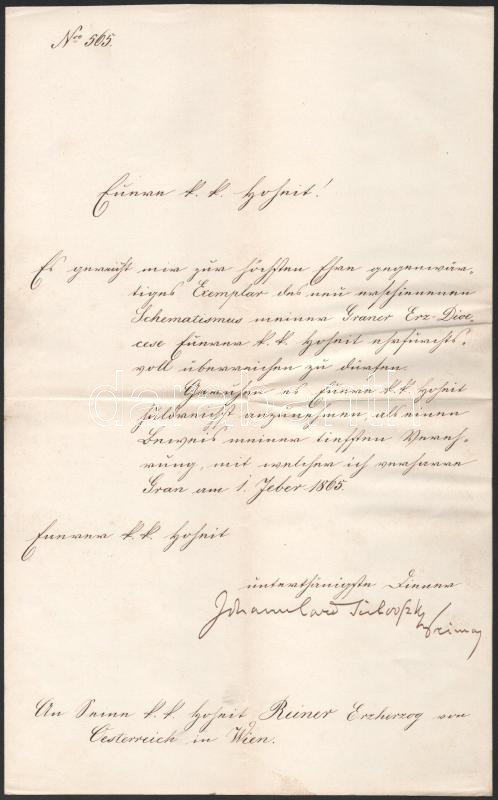 Nro 565.
Euere k. k. Hoheit!
Es gereicht mir zur höchsten Ehre gegenwär-
tiges Exemplar des neu erschienenen
Schematismus meiner Graner Erz-Dioe-
cese Euerer k. k. Hoheit ehrfurchts-
voll überreichen zu dürfen.
Geruhen es Euere k. k. Hoheit
huldreichst anzunehmen, als einen
Beweis meiner tiefsten Vereh-
rung, mit welcher ich verharre
Gran am 1. Feber 1865.
Euerer k. k. Hoheit
unterthänigste Diener
Johann Card Primas
An Seine k. k. Hoheit Reiner Erzherzog von
Oesterreich in Wien.